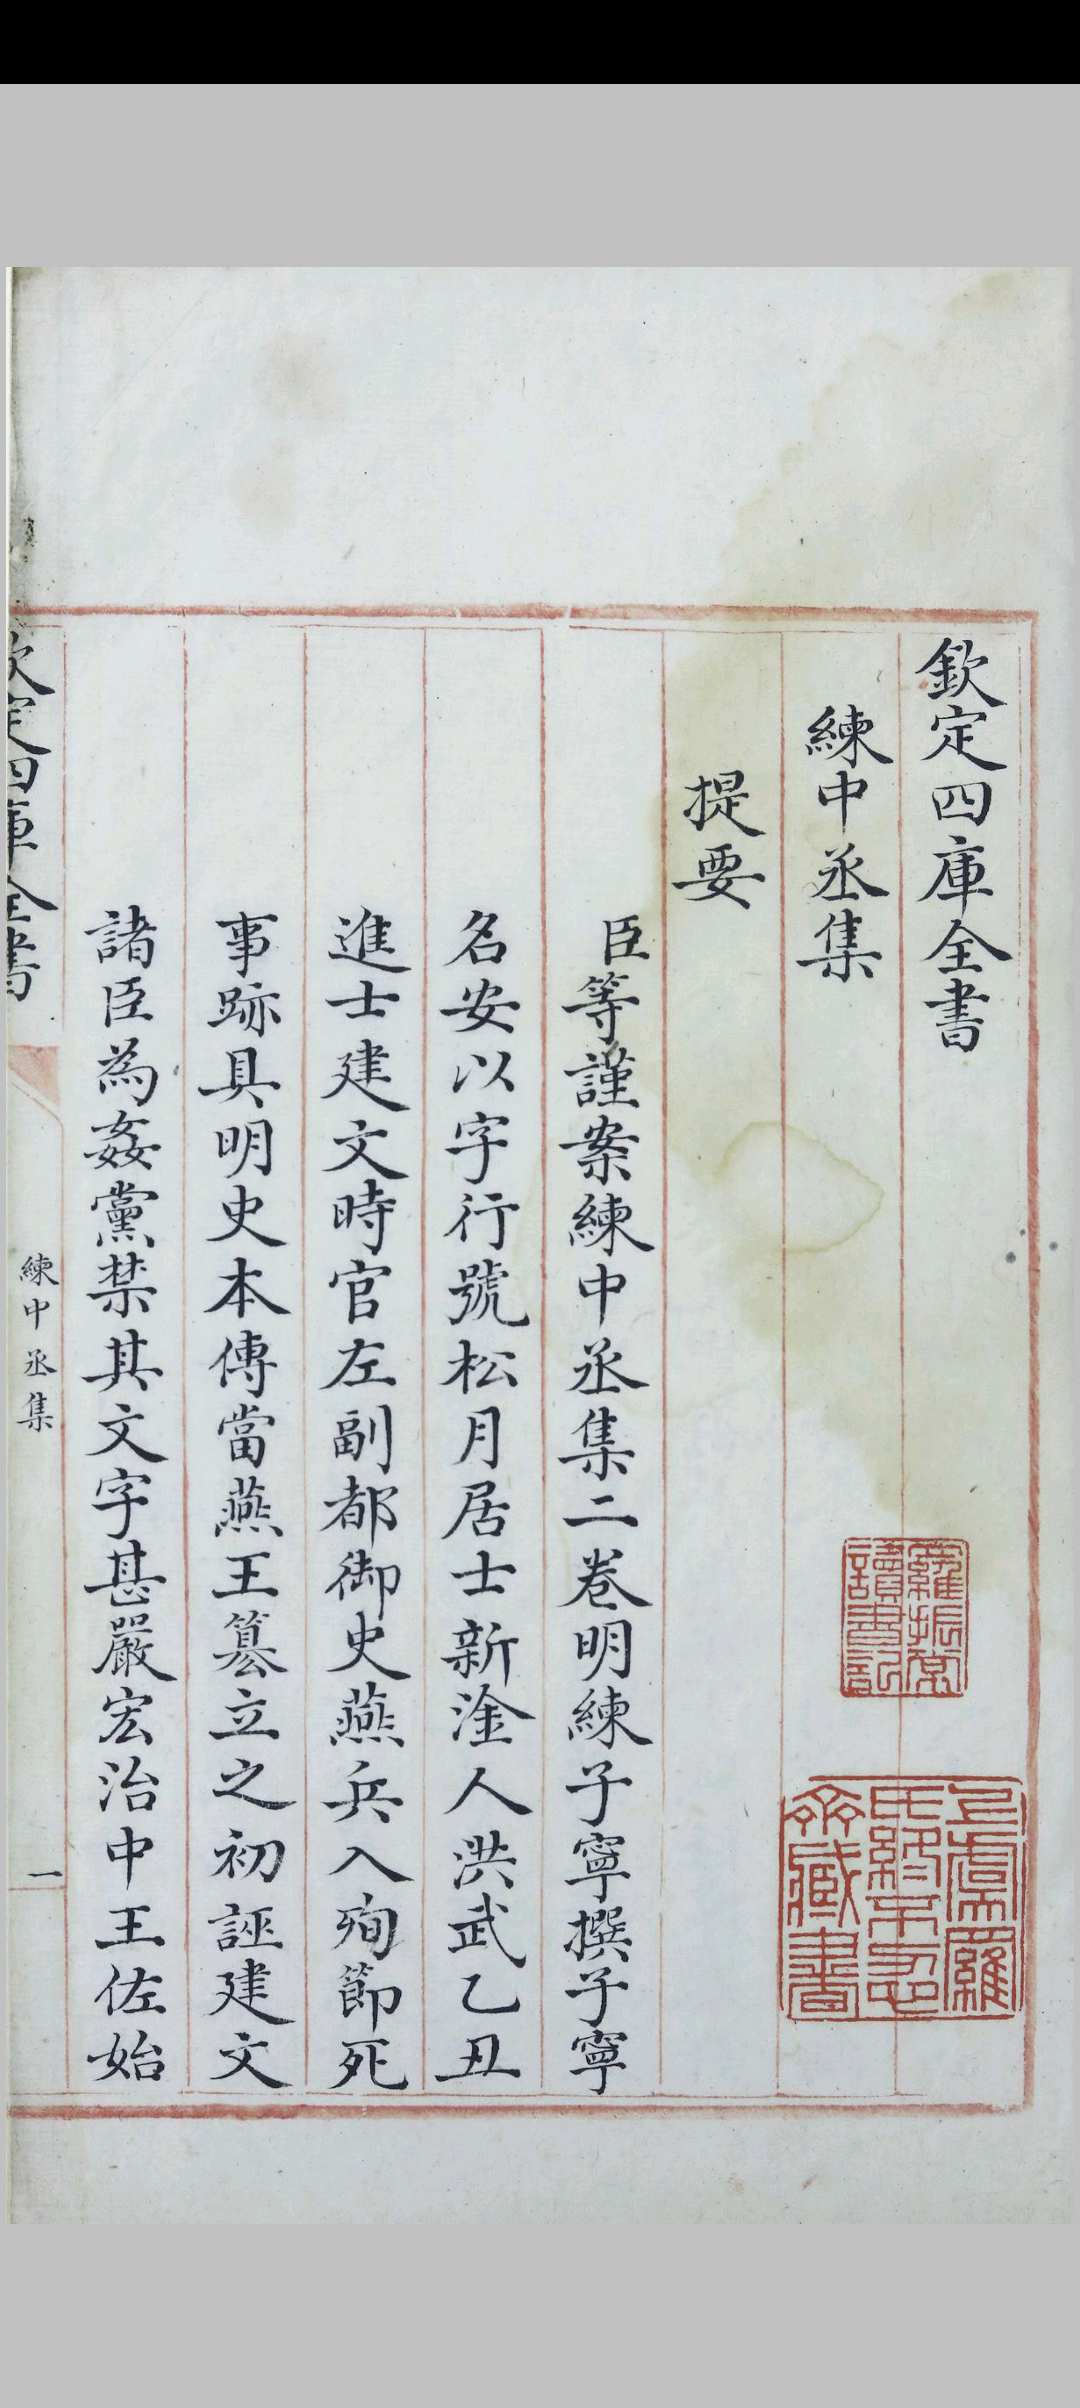 欽定四庫全書
練中丞集
提要
臣等謹案練中丞集二卷明練子寧撰子寧
名安以字行號松月居士新淦人洪武乙丑
進士建文時官左副都御史燕兵入殉節死
事跡具明史本傳當燕王簒立之初誣建文
諸臣為姦黨禁其文字甚嚴宏治中王佐始
欽定四庫全書
練中丞集
一
羅振常
讀書記